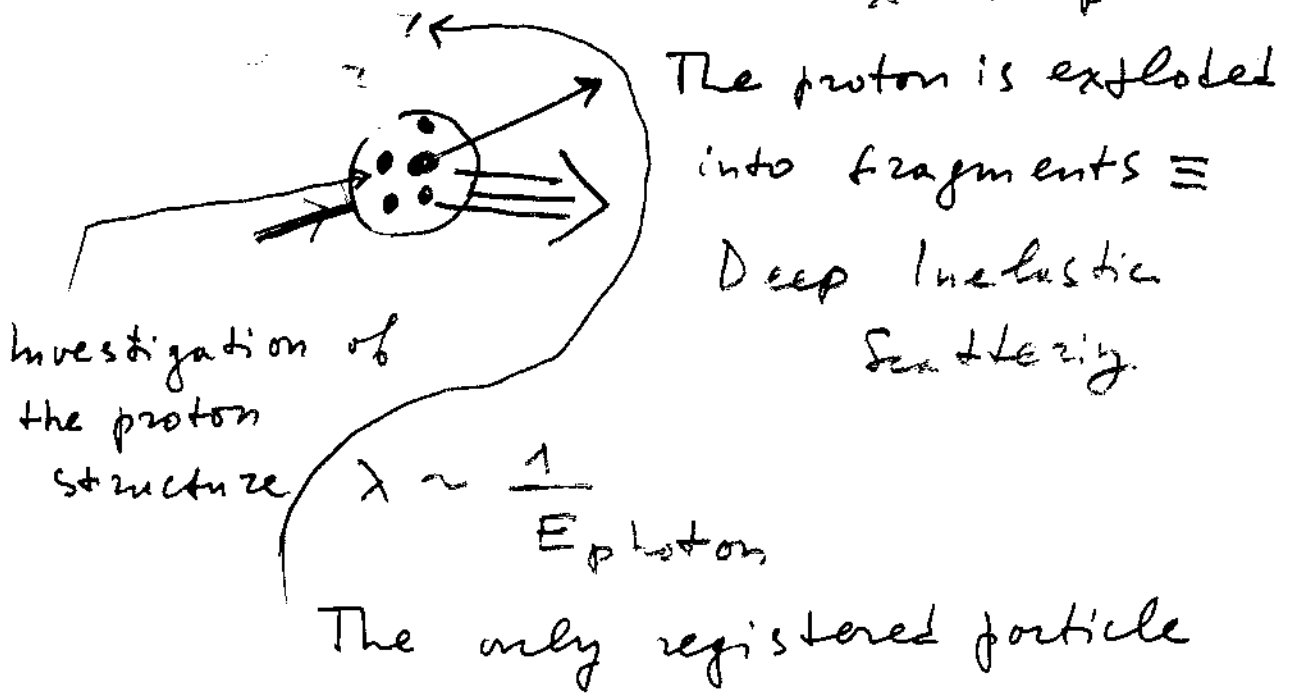 The proton is exploded
into fragments ≡
Deep Inelastic
Scattering.
Investigation of
the proton
structure
λ ~ 1/E photon
The only registered particle